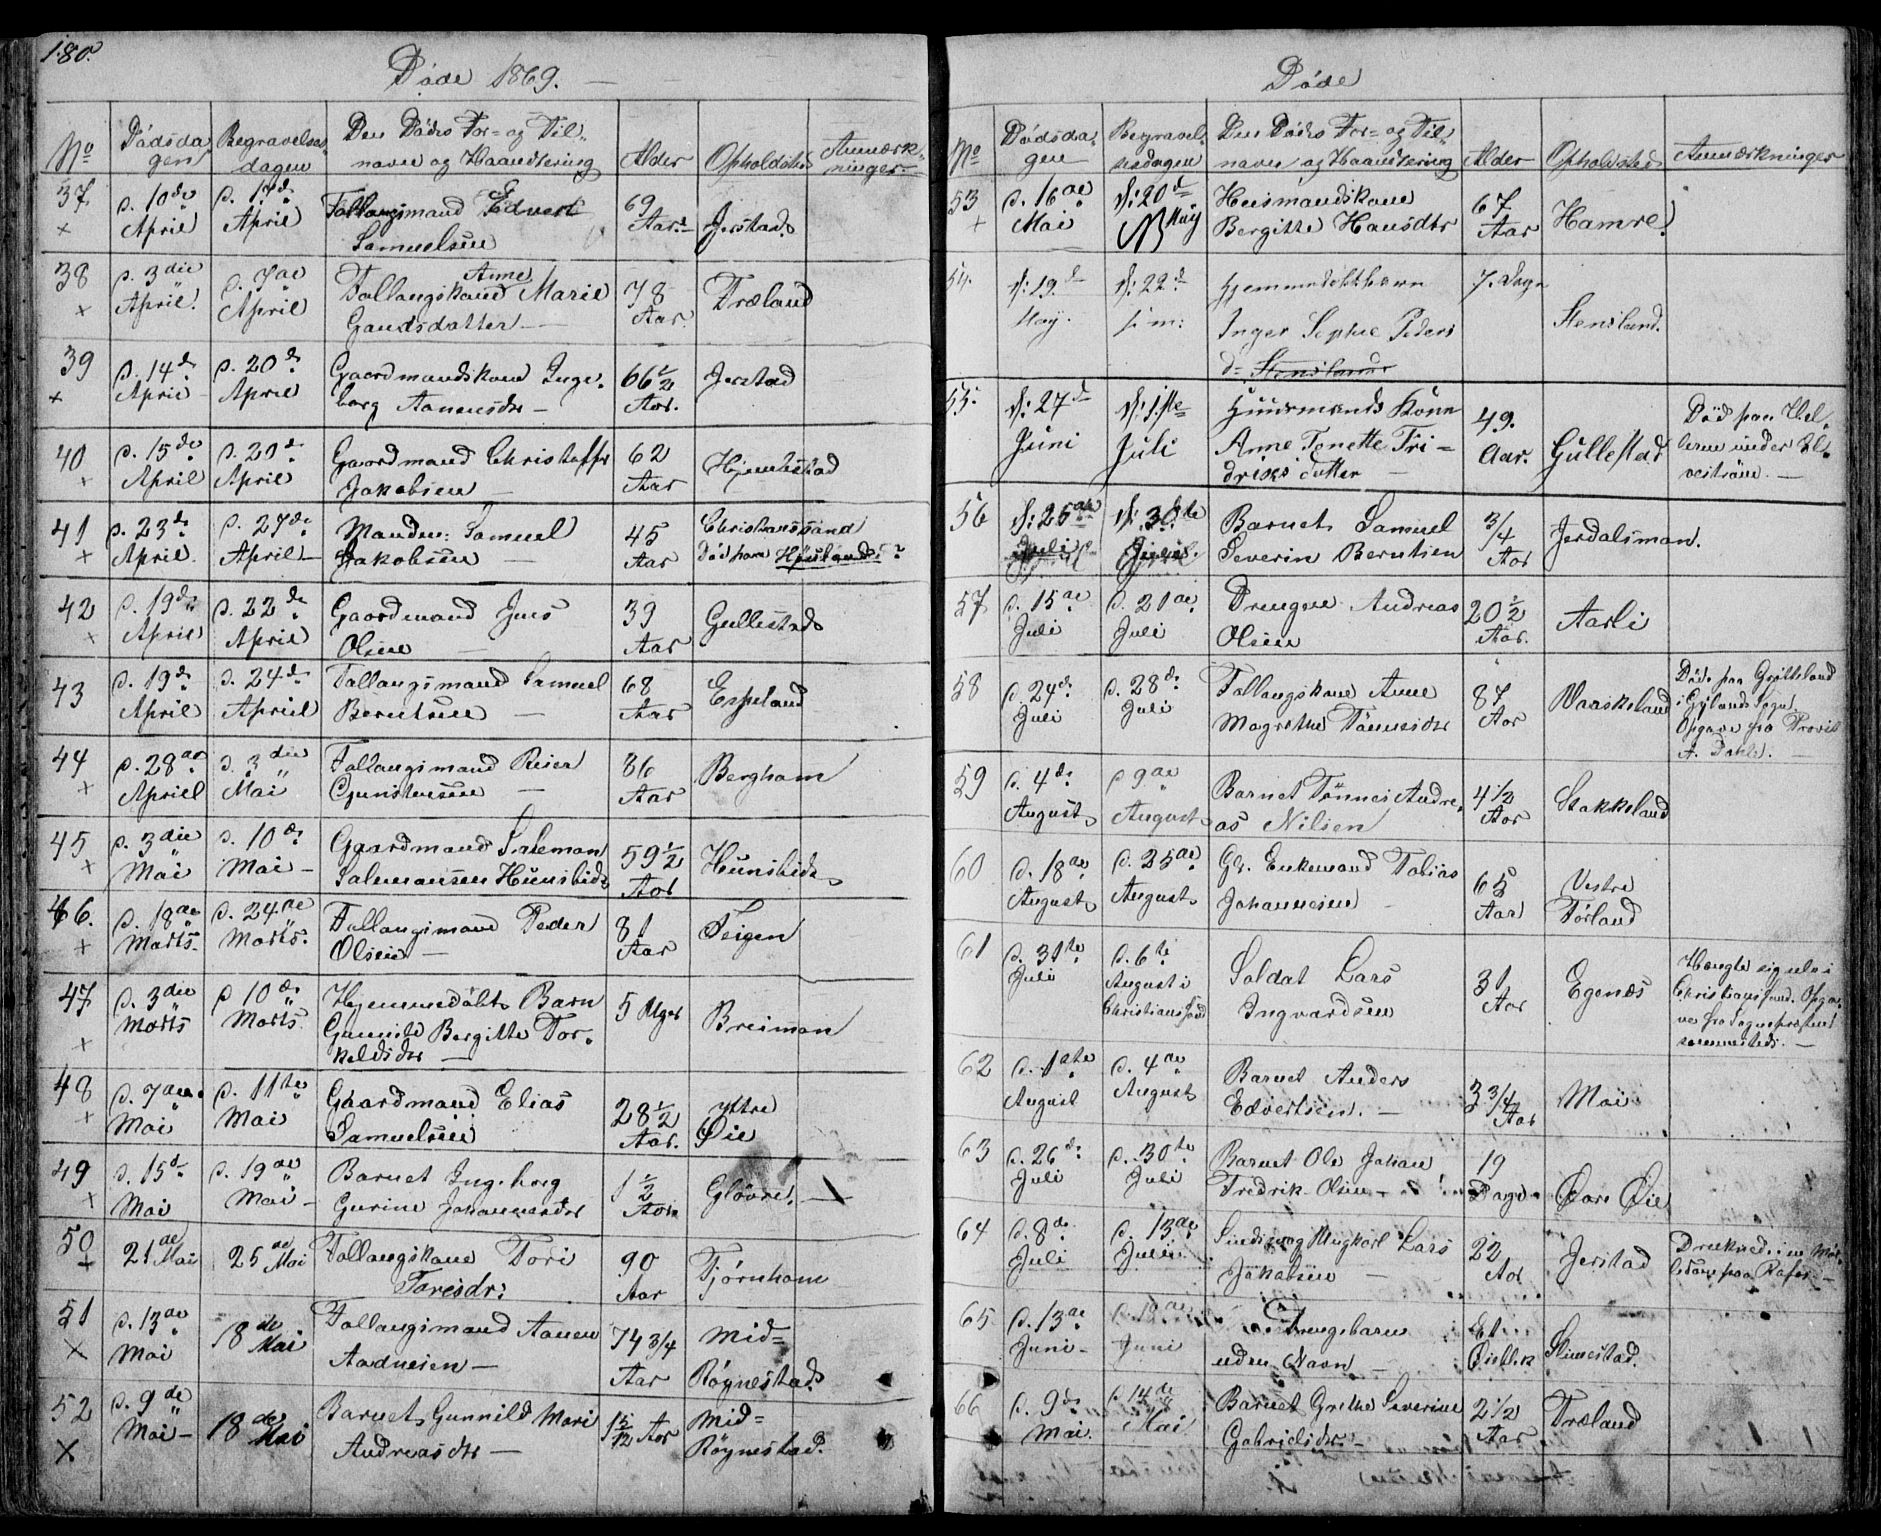 180.
Døde 1869.
No
Dødsda-
gen
Begravelses-
dagen
Den Dødes For- og Til-
navn og Haandtering
Alder
Opholdsted
Anmærk-
ninger.
37 d. 10de April April Follaugsmand Edvart Samuelsen 69 Aar. Jerstad.
38 d. 3die April. d. 7de April Follaugskone Anne Marie Gaudsdatter 78 Aar. Træland
39 d. 14de April d. 20de April Gaardmandskone Inge-
borg Aanensdtr 66½ Aar. Jerstad
40 d. 15de April d. 20de April Gaardmand Christoffer
Jakobsen 62 Aar
41 d. 23de April d. 27de April Manden: Samuel
Jakobsen 45 Aar Christianssand
Død paa
42 d. 19de April d. 22de April Gaardmand Jens
Olsen 39 Aar Gullestad
43 d. 19de April d. 24de April Follaugsmand Samuel
Berntsen 68 Aar Espeland
44 d. 28de April d. 3die Mai Follaugsmand Reier
Gunstensen 86 Aar Bergham
45 d. 3die Mai d. 10de Mai Gaardmand Saleman
Salemansen Hunsbidt 59½ Aar Hunsbidt
46. d. 18de Marts. d. 24de Marts. Follaugsmand Peder
Olsen 81 Aar Feigen
47 d. 3die Marts d. 10de Marts. Hjemmedøbt Barn
Gunild Bergitte Tor-
keldsdtr 5 Uger Breimoen
48 d. 7de Mai d. 11te Mai Gaardmand Elias
Samuelsen 28½ Aar. Yttre
Øie
49 d. 15de Mai d. 19de Mai Barnet Ingeborg
Gurine Johannesdtr 1½ Aar Gløvre.
50 21de Mai 25de Mai Follaugskone Tori
Toresdr: 90 Aar Tjørnhom
51 d. 13de Mai 18de Mai Follaugsmand Aanen
Aadnesen 74 3/4 Aar Mid=
Røynestad.
52 d. 9de Mai 18de Mai Barnet Gunnild Mari
Andreasdtr 1 5/12 Aar Mid=
Røynestad.
Døde
No
Dødsda-
gen
Begravel-
sesdagen
Den Dødes For- og Til-
navn og Haandtering
Alder
Opholdsted
Anmærkninger
53 d. 16de Mai d: 20de May Huusmandskone
Bergitte Hansdtr 67 Aar Hamre.
54. d: 19de May. d: 22de Hjemmedøbtbarn
Inger Sophie Peders
d= Stensland 7. Dage Stensland.
55. d: 27de Juni d: 1ste Juli Huusmands Kone
Anne Tonette Fri-
driksdatter 49. Aar. Gullestad Død paa Hel-
leren under
56 d: 25de d: 30te Barnet Samuel
Severin Berntsen 3/4 Aar Jerdalsmon.
57 d. 15de Juli d. 21de Juli Drengen Andreas
Olsen 20½ Aar. Aarli
58 d. 24de Juli d. 28de Juli Follaugskone Anne
Magrethe Tønnesdtr 87 Aar Vaaskeland Døde paa
i Gylands Sogn.
Opgave fra Provst
A. Dahl.
59 d. 4de August d 9de August Barnet Tønnes Andre-
as Nilsen 4½ Aar Stakkeland
60 d. 18de August d. 25de August Gl. Enkemand Tobias
Johannesen 65 Aar Vestre
Førland
61 d. 31te Juli d. 6te August i
Christianssand Soldat Lars
Ingvardsen 31 Aar Egenæs Hængte sig selv i
Christianssand. Opga-
ve fra Sognepræsten
sammesteds.
62 d. 1ste August d. 4de August Barnet Anders
Edvertsen. 3 3/4 Aar Moi
63 d. 26de Juli d. 30te Juli Barnet Ole Johan
Fredrik Olsen 19 Dage Øvre Øie
64 d. 8de Juli d. 13de Juli Sindssvag Ungkarl Lars
Jakobsen 22 Aar Jerstad Druknede i en
65 d. 13de Juni Juni Drengebarn
uden Navn Et
Øieblik Stimestad.
66 d. 9de Mai. d. 14de Mai Barnet Grethe Severine
Gabrielsdtr. 2½ Aar Træland